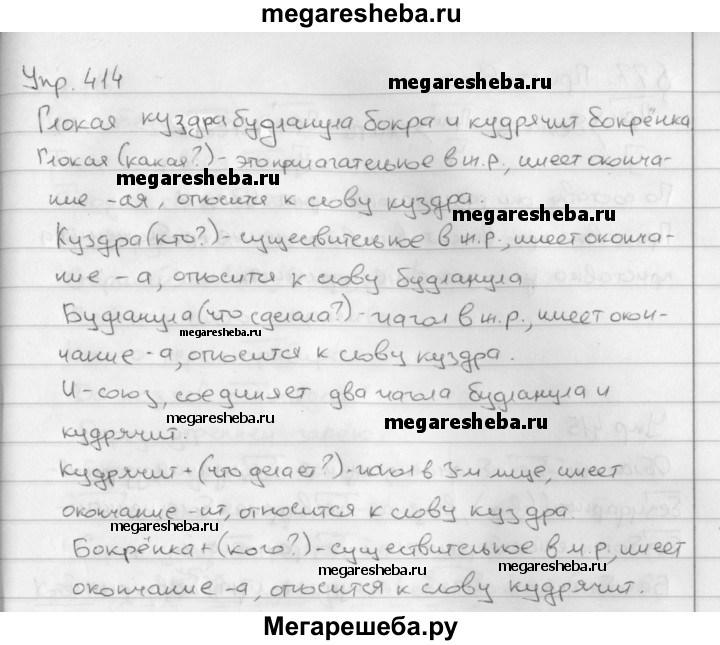 megaresheba.ru
Упр. 414
megaresheba.ru
Глокая куздра будланула бокра и кудрячит бокрёнка
Глокая (какая?) - это прилагательное в ж.р., имеет оконча-
megaresheba.ru
ние -ая, относится к слову куздра.
megaresheba.ru
Куздра (кто?) - существительное в ж.р., имеет оконча-
ние - а, относится к слову будланула.
Будланула (что сделала?) - глагол в ж.р., имеет окон-
megaresheba.ru
чание -а, относится к слову куздра.
И - союз, соединяет два глагола будланула и
megaresheba.ru
megaresheba.ru
кудрячит.
Кудрячит + (что делает?) - глагол в 3-м лице, имеет
окончание -ит, относится к слову куздра.
megaresheba.ru
Бокрёнка + (кого?) - существительное в м.р., имеет
megaresheba.ru
megaresheba.ru
окончание -а, относится к слову кудрячит.
Мегарешеба.ру